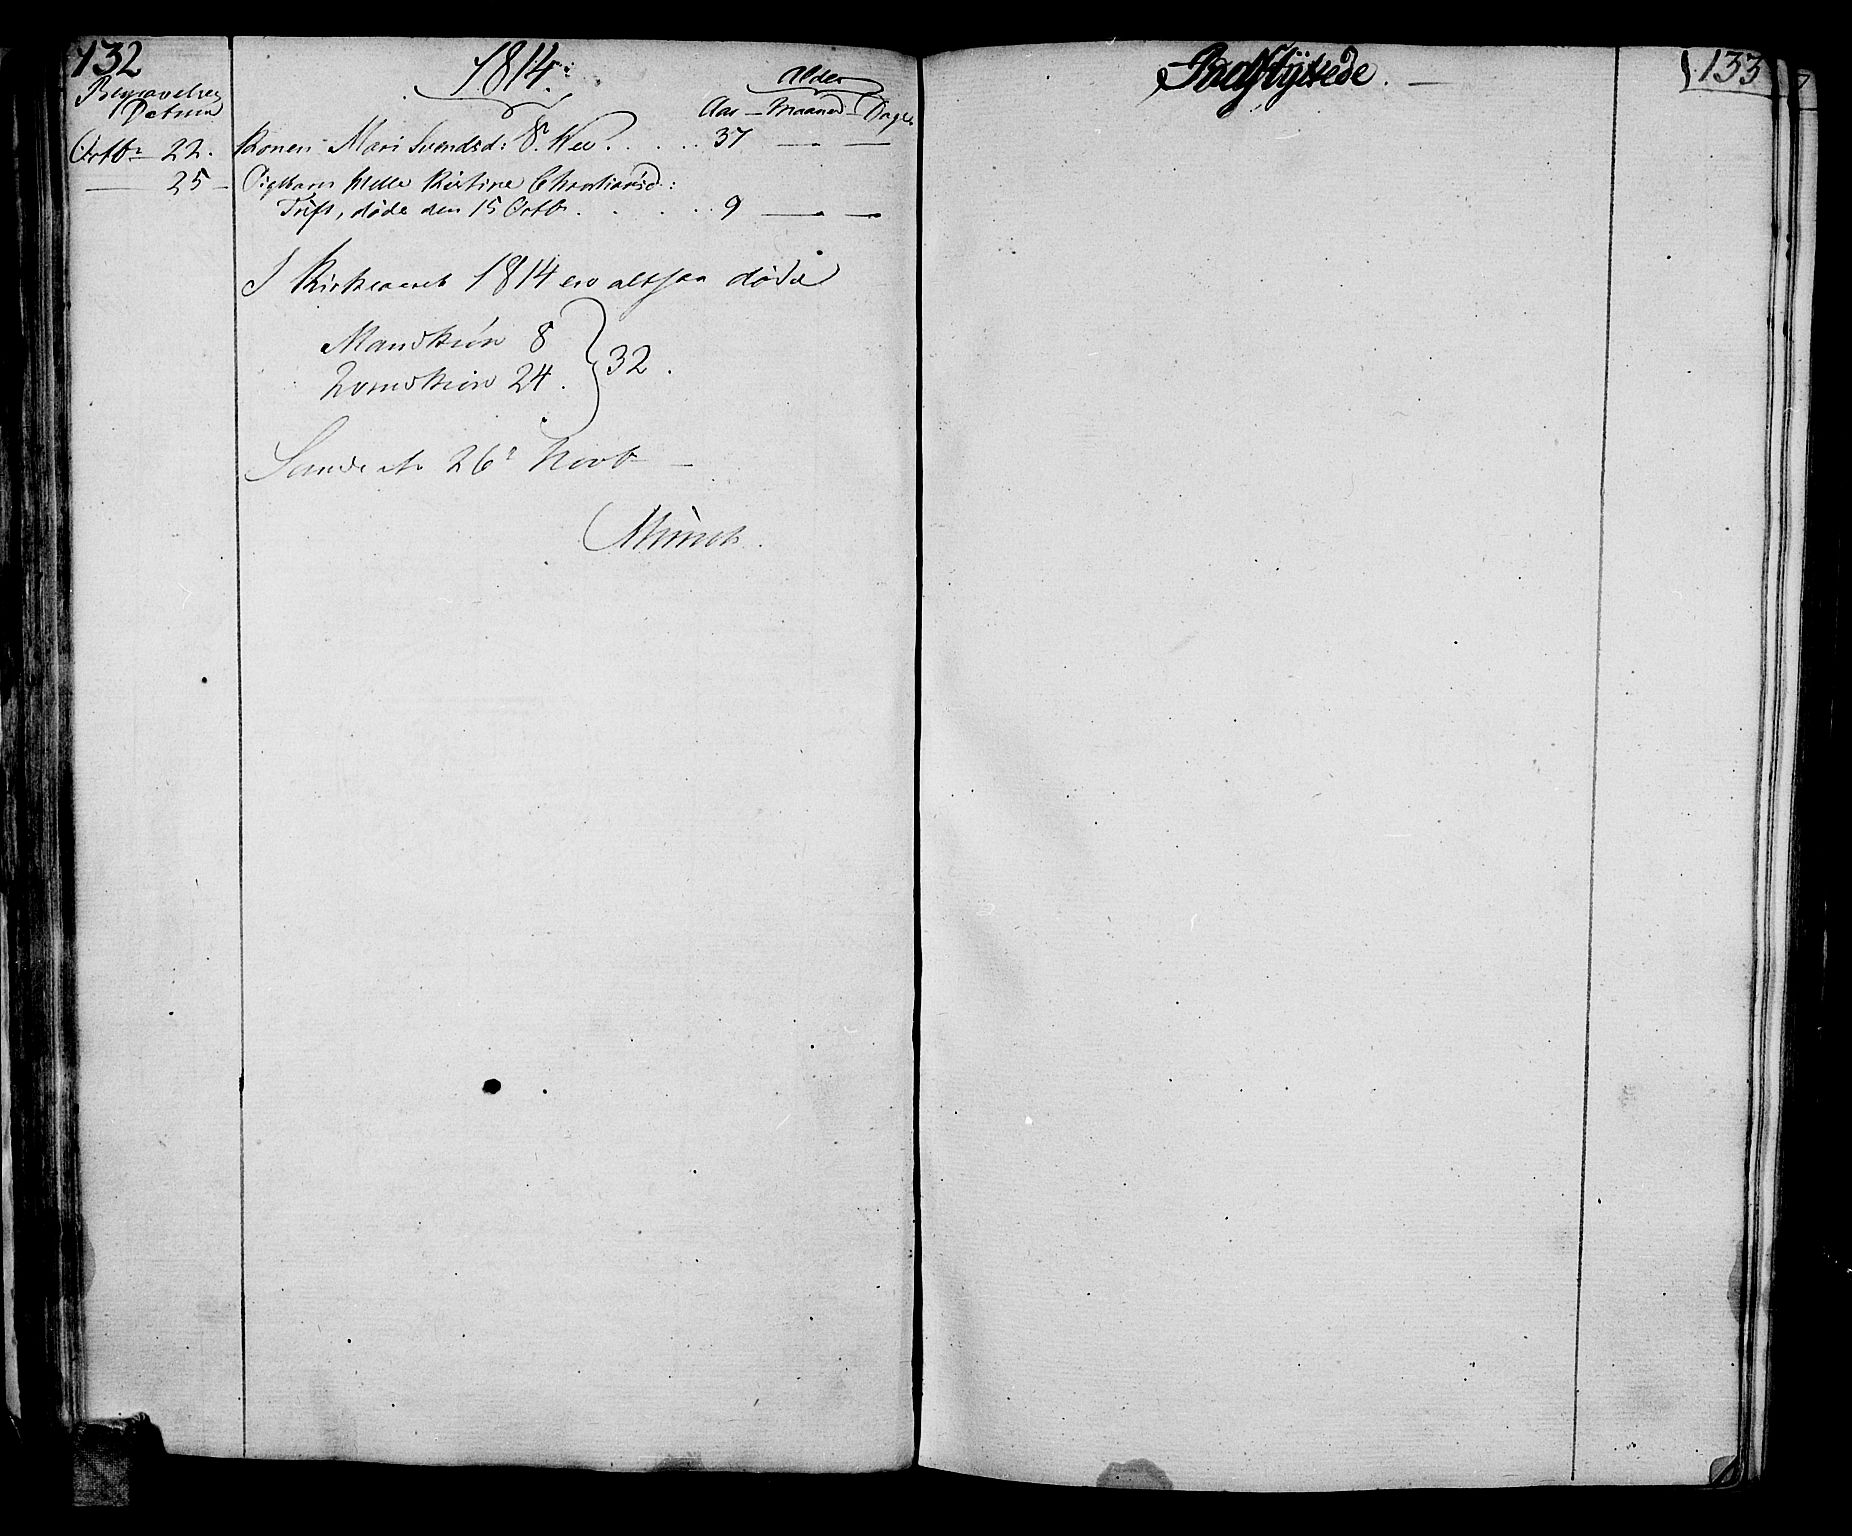 132
1814.
Begravelses Datum
Alder
Aar – Maaned – Dage
Octbr 22. Konen Mari Svendsd: V. Wee. . . . . 37 — —
— 25 – Pigebarn Helle Kirstine Christiansd:
Tuft, døde den 15 Octb. . . . . . 9 — —
I Kirkeaaret 1814 ere altsaa døde
Mandkiøn 8
32.
Qvindekiøn 24.
Sande d. 26 Novb –
Münch.
Indflyttede. —
133